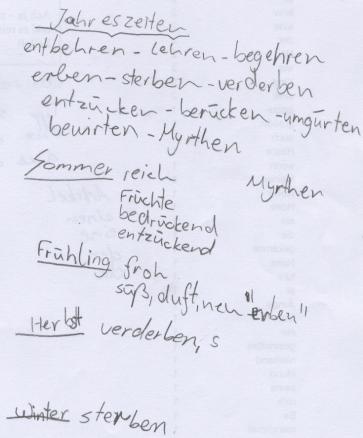 Jahreszeiten
entbehren - Lehren - begehren
erben - sterben - verderben
entzücken - berücken - umgürten
bewirten - Myrthen
Sommer reich Myrthen
Früchte
bedrückend
entzückend
Frühling froh
süß, duft, neu "erben"
Herbst verderben, s
Winter sterben